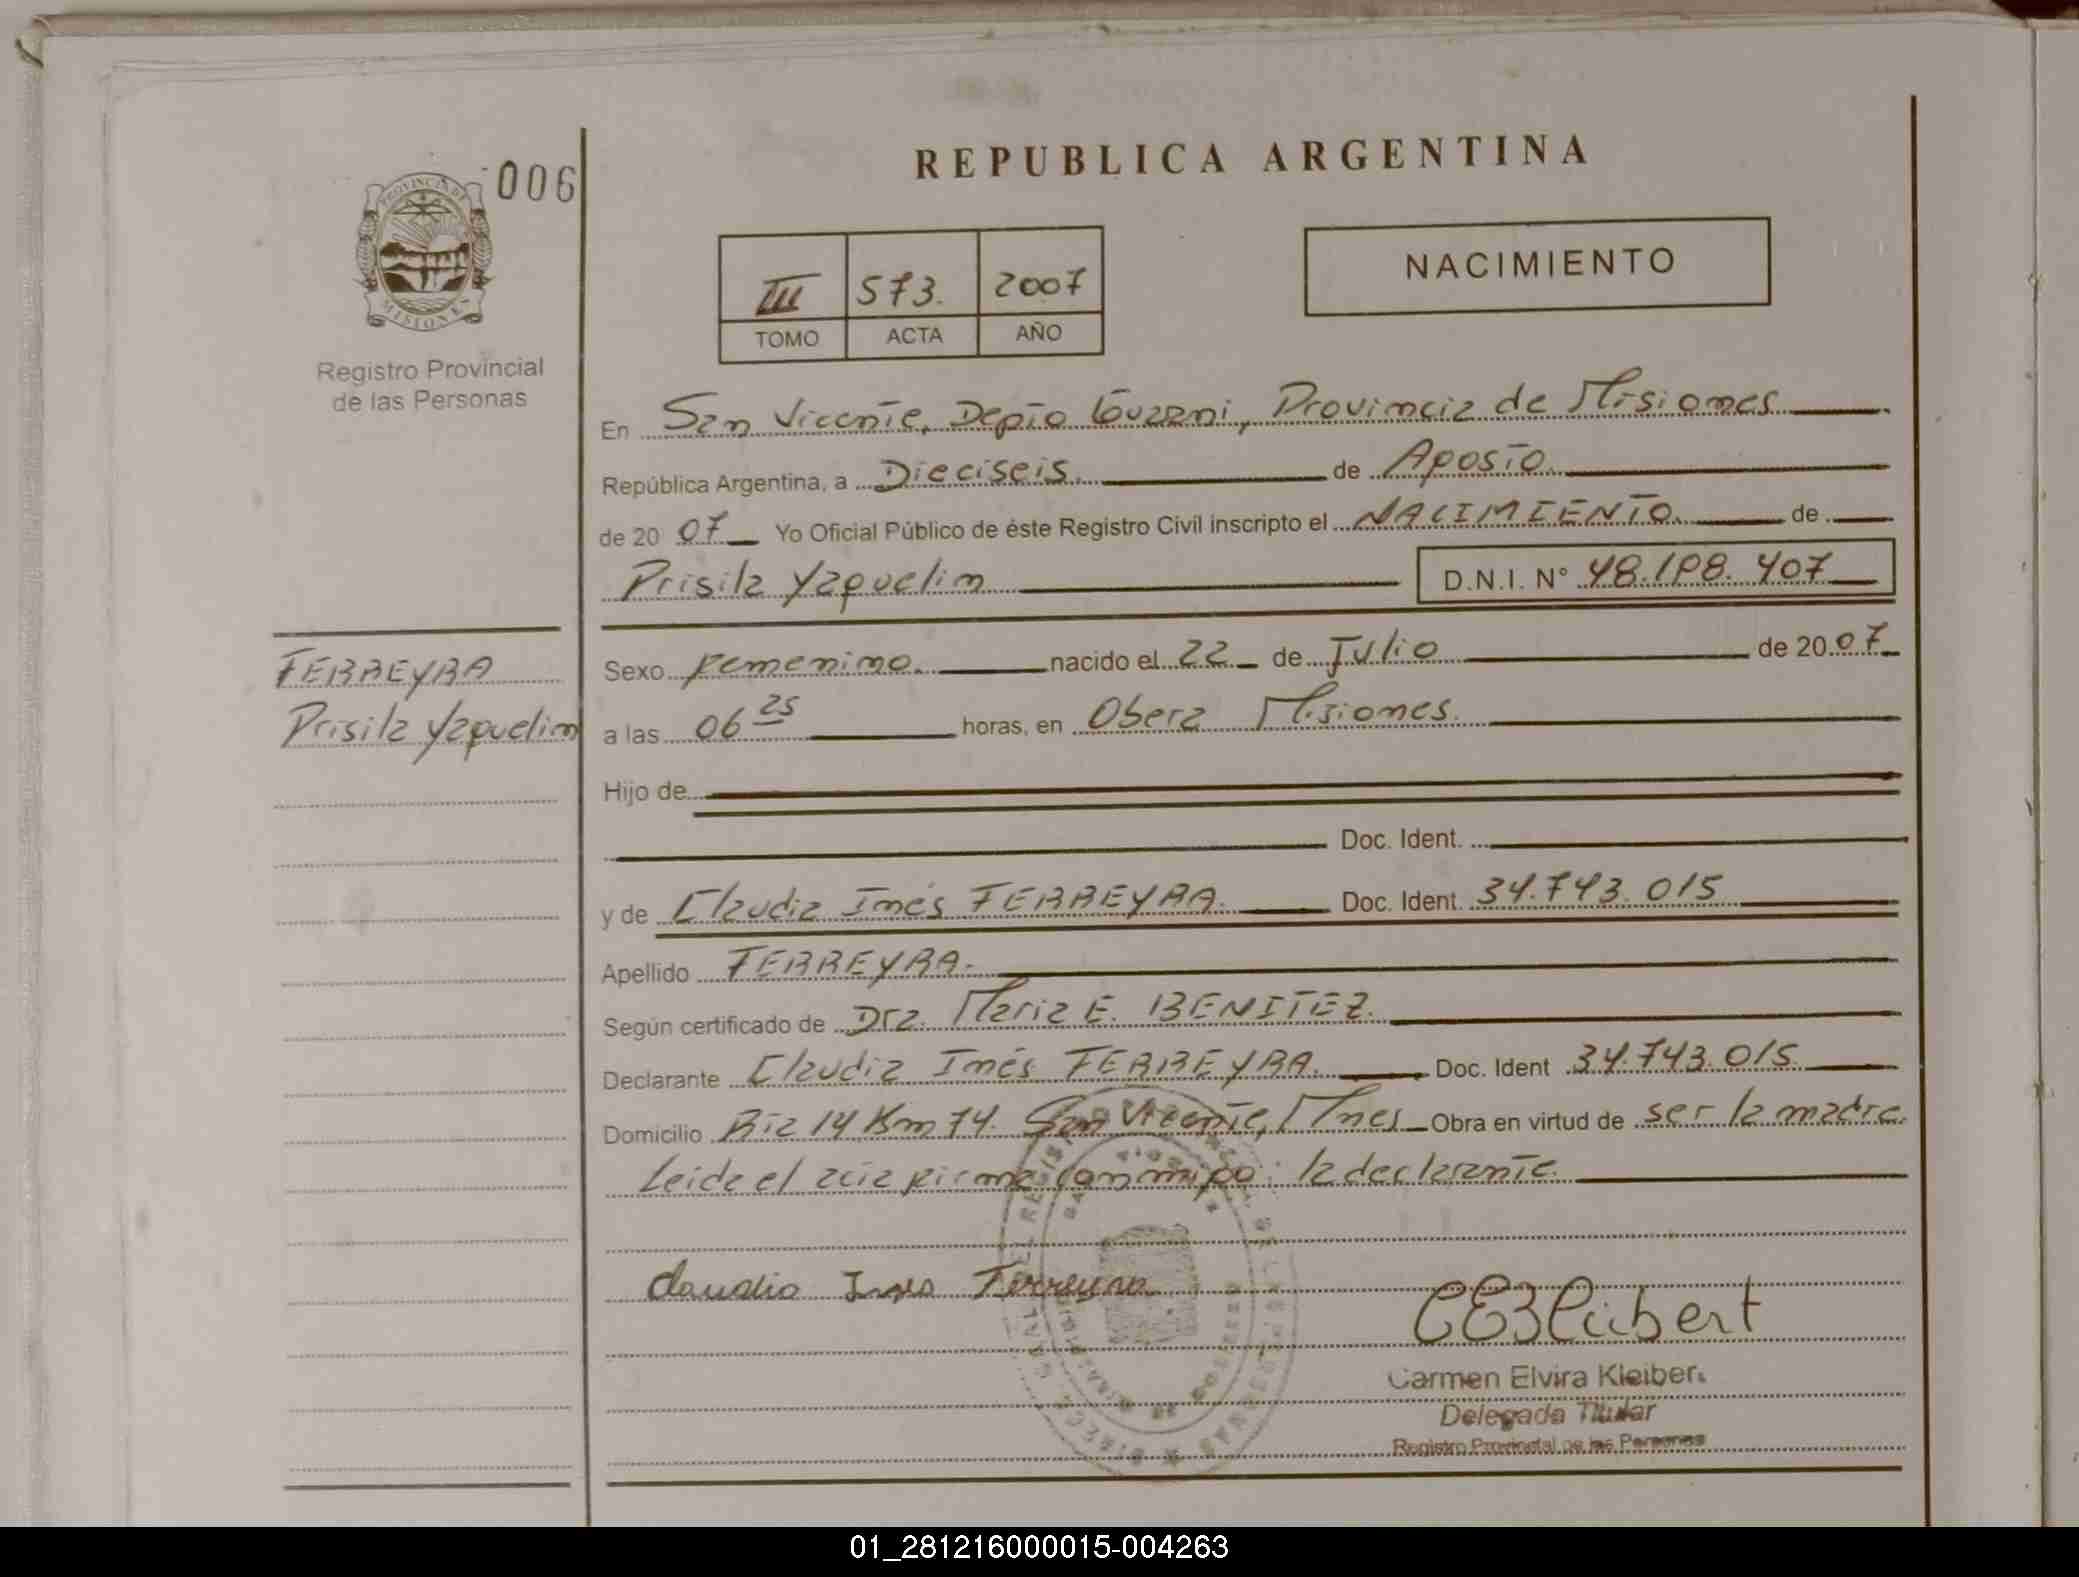 006
PROVINCIA DE
MISIONES
Registro Provincial
de las Personas
REPUBLICA ARGENTINA
III 573. 2007
TOMO ACTA AÑO
NACIMIENTO
En San Vicente, Depto Guarani, Provincia de Misiones
República Argentina, a Dieciseis. de Agosto
de 2007 Yo Oficial Público de éste Registro Civil inscripto el NACIMIENTO. de
Prisila Yaquelin D.N.I. Nº 48.198.407
FERREYRA
Prisila Yaquelin
Sexo Femenino. nacido el 22 de Julio de 2007
a las 06 25 horas, en Obera Misiones.
Hijo de
Doc. Ident.
y de Claudia Inés FERREYRA. Doc. Ident. 34.743.015
Apellido FERREYRA.
Según certificado de Dra. Maria E. BENITEZ.
Declarante Claudia Inés FERREYRA. Doc. Ident 34.743.015
Domicilio Rta 14 Km 74. San Vicente, Mnes Obra en virtud de ser la madre.
Leida el acta firma conmigo: la declarante.
Claudia Ines Ferreyra
Carmen Elvira Kleiber
Delegada Titular
Registro Provincial de las Personas
01_281216000015-004263